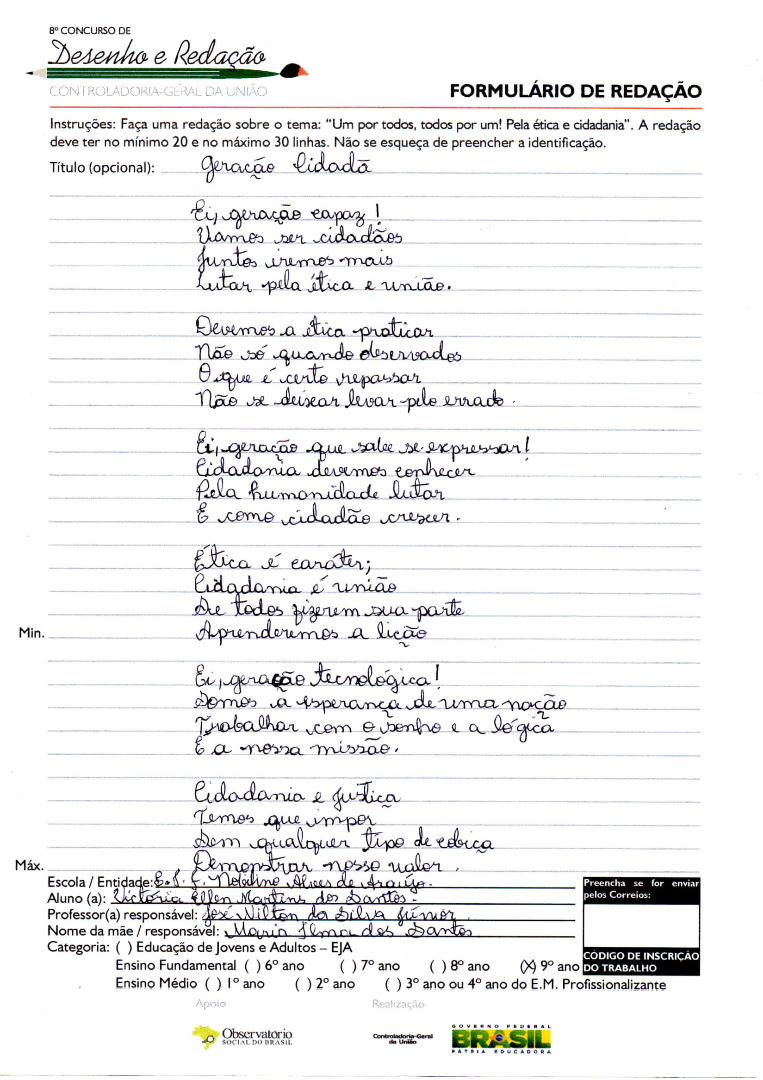 8º CONCURSO DE
Desenho e Redação
CONTROLADORIA-GERAL DA UNIÃO
FORMULÁRIO DE REDAÇÃO
Instruções: Faça uma redação sobre o tema: “Um por todos, todos por um! Pela ética e cidadania”. A redação
deve ter no mínimo 20 e no máximo 30 linhas. Não se esqueça de preencher a identificação.
Título (opcional): Geração Cidadã
Ei, geração capaz!
Vamos ser cidadãos
Juntos iremos mais
Lutar pela ética e união.
Devemos a ética praticar
Não só quando observados
O que é certo repassar
Não se deixar levar pelo errado.
Ei, geração que sabe se expressar!
Cidadania devemos conhecer
Pela humanidade lutar
E como cidadão crescer.
Ética é caráter;
Cidadania é união
Se todos fizerem sua parte
Min. Aprenderemos a lição
Ei, geração tecnológica!
Somos a esperança de uma nação
Trabalhar com o sonho e a lógica
É a nossa missão.
Cidadania e justiça
Temos que impor
Sem qualquer tipo de cobiça
Máx. Demonstrar nosso valor.
Escola / Entidade: Alves de Araújo.
Aluno (a): Victória Ellen Martins dos Santos.
Professor(a) responsável: José Nilton da Silva Júnior
Nome da mãe / responsável: Maria Ilma dos Santos
Preencha se for enviar
pelos Correios:
CÓDIGO DE INSCRIÇÃO
DO TRABALHO
Categoria: ( ) Educação de Jovens e Adultos – EJA
Ensino Fundamental ( ) 6º ano ( ) 7º ano ( ) 8º ano (X) 9º ano
Ensino Médio ( ) 1º ano ( ) 2º ano ( ) 3º ano ou 4º ano do E.M. Profissionalizante
Apoio
Realização
Observatório
SOCIAL DO BRASIL
Controladoria-Geral
da União
GOVERNO FEDERAL
BRASIL
PÁTRIA EDUCADORA